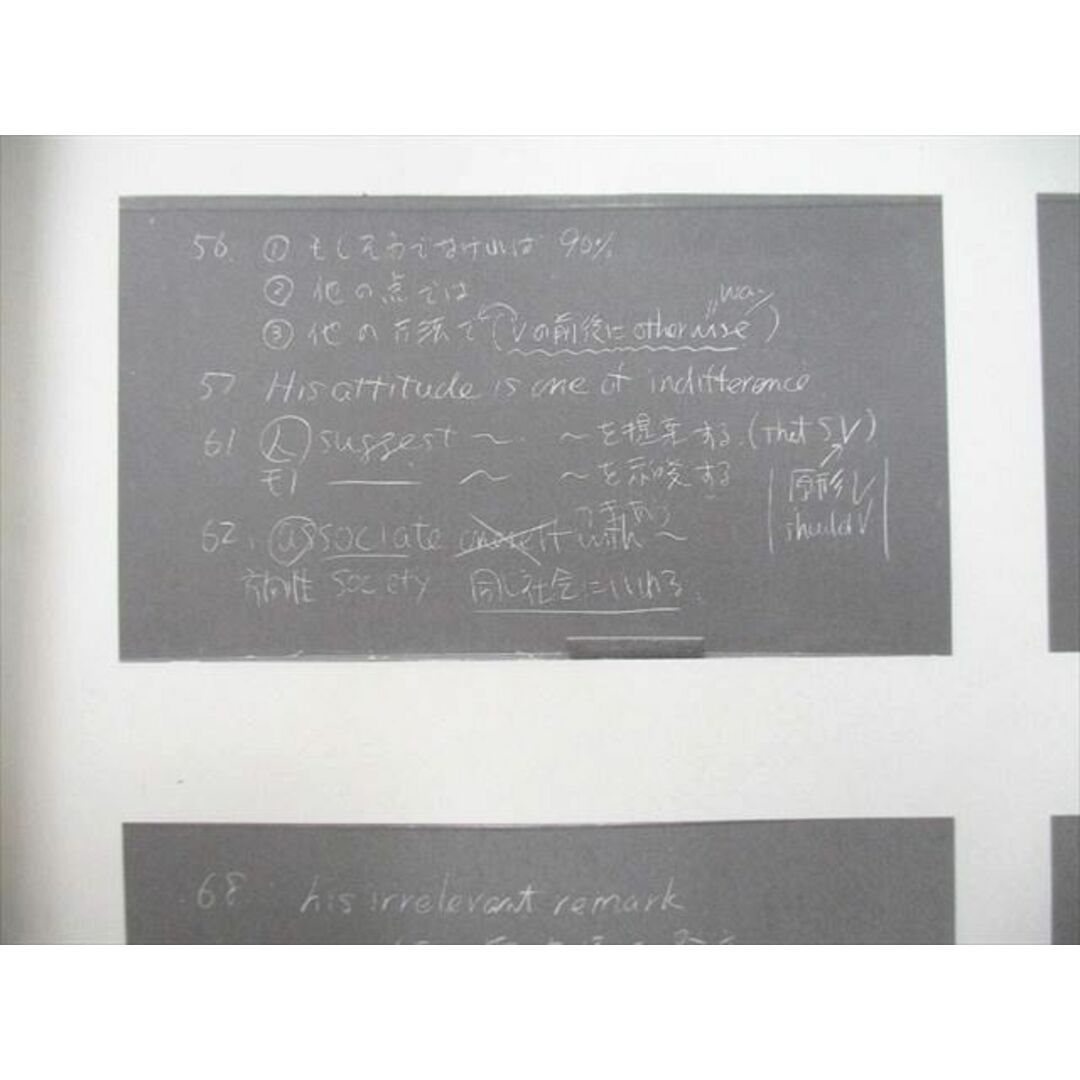 56. ① もしそうでなければ 90%
② 他の点では
③ 他の方法で (Vの前後にotherwise)
way
57 His attitude is one of indifference
61 人 suggest 〜. 〜を提案する.(that S V)
モノ 〜 〜を示唆する
原形V
should V
62. associate oneself with 〜
方向性 society 同じ社会にいれる.
68 his irrelevant remark